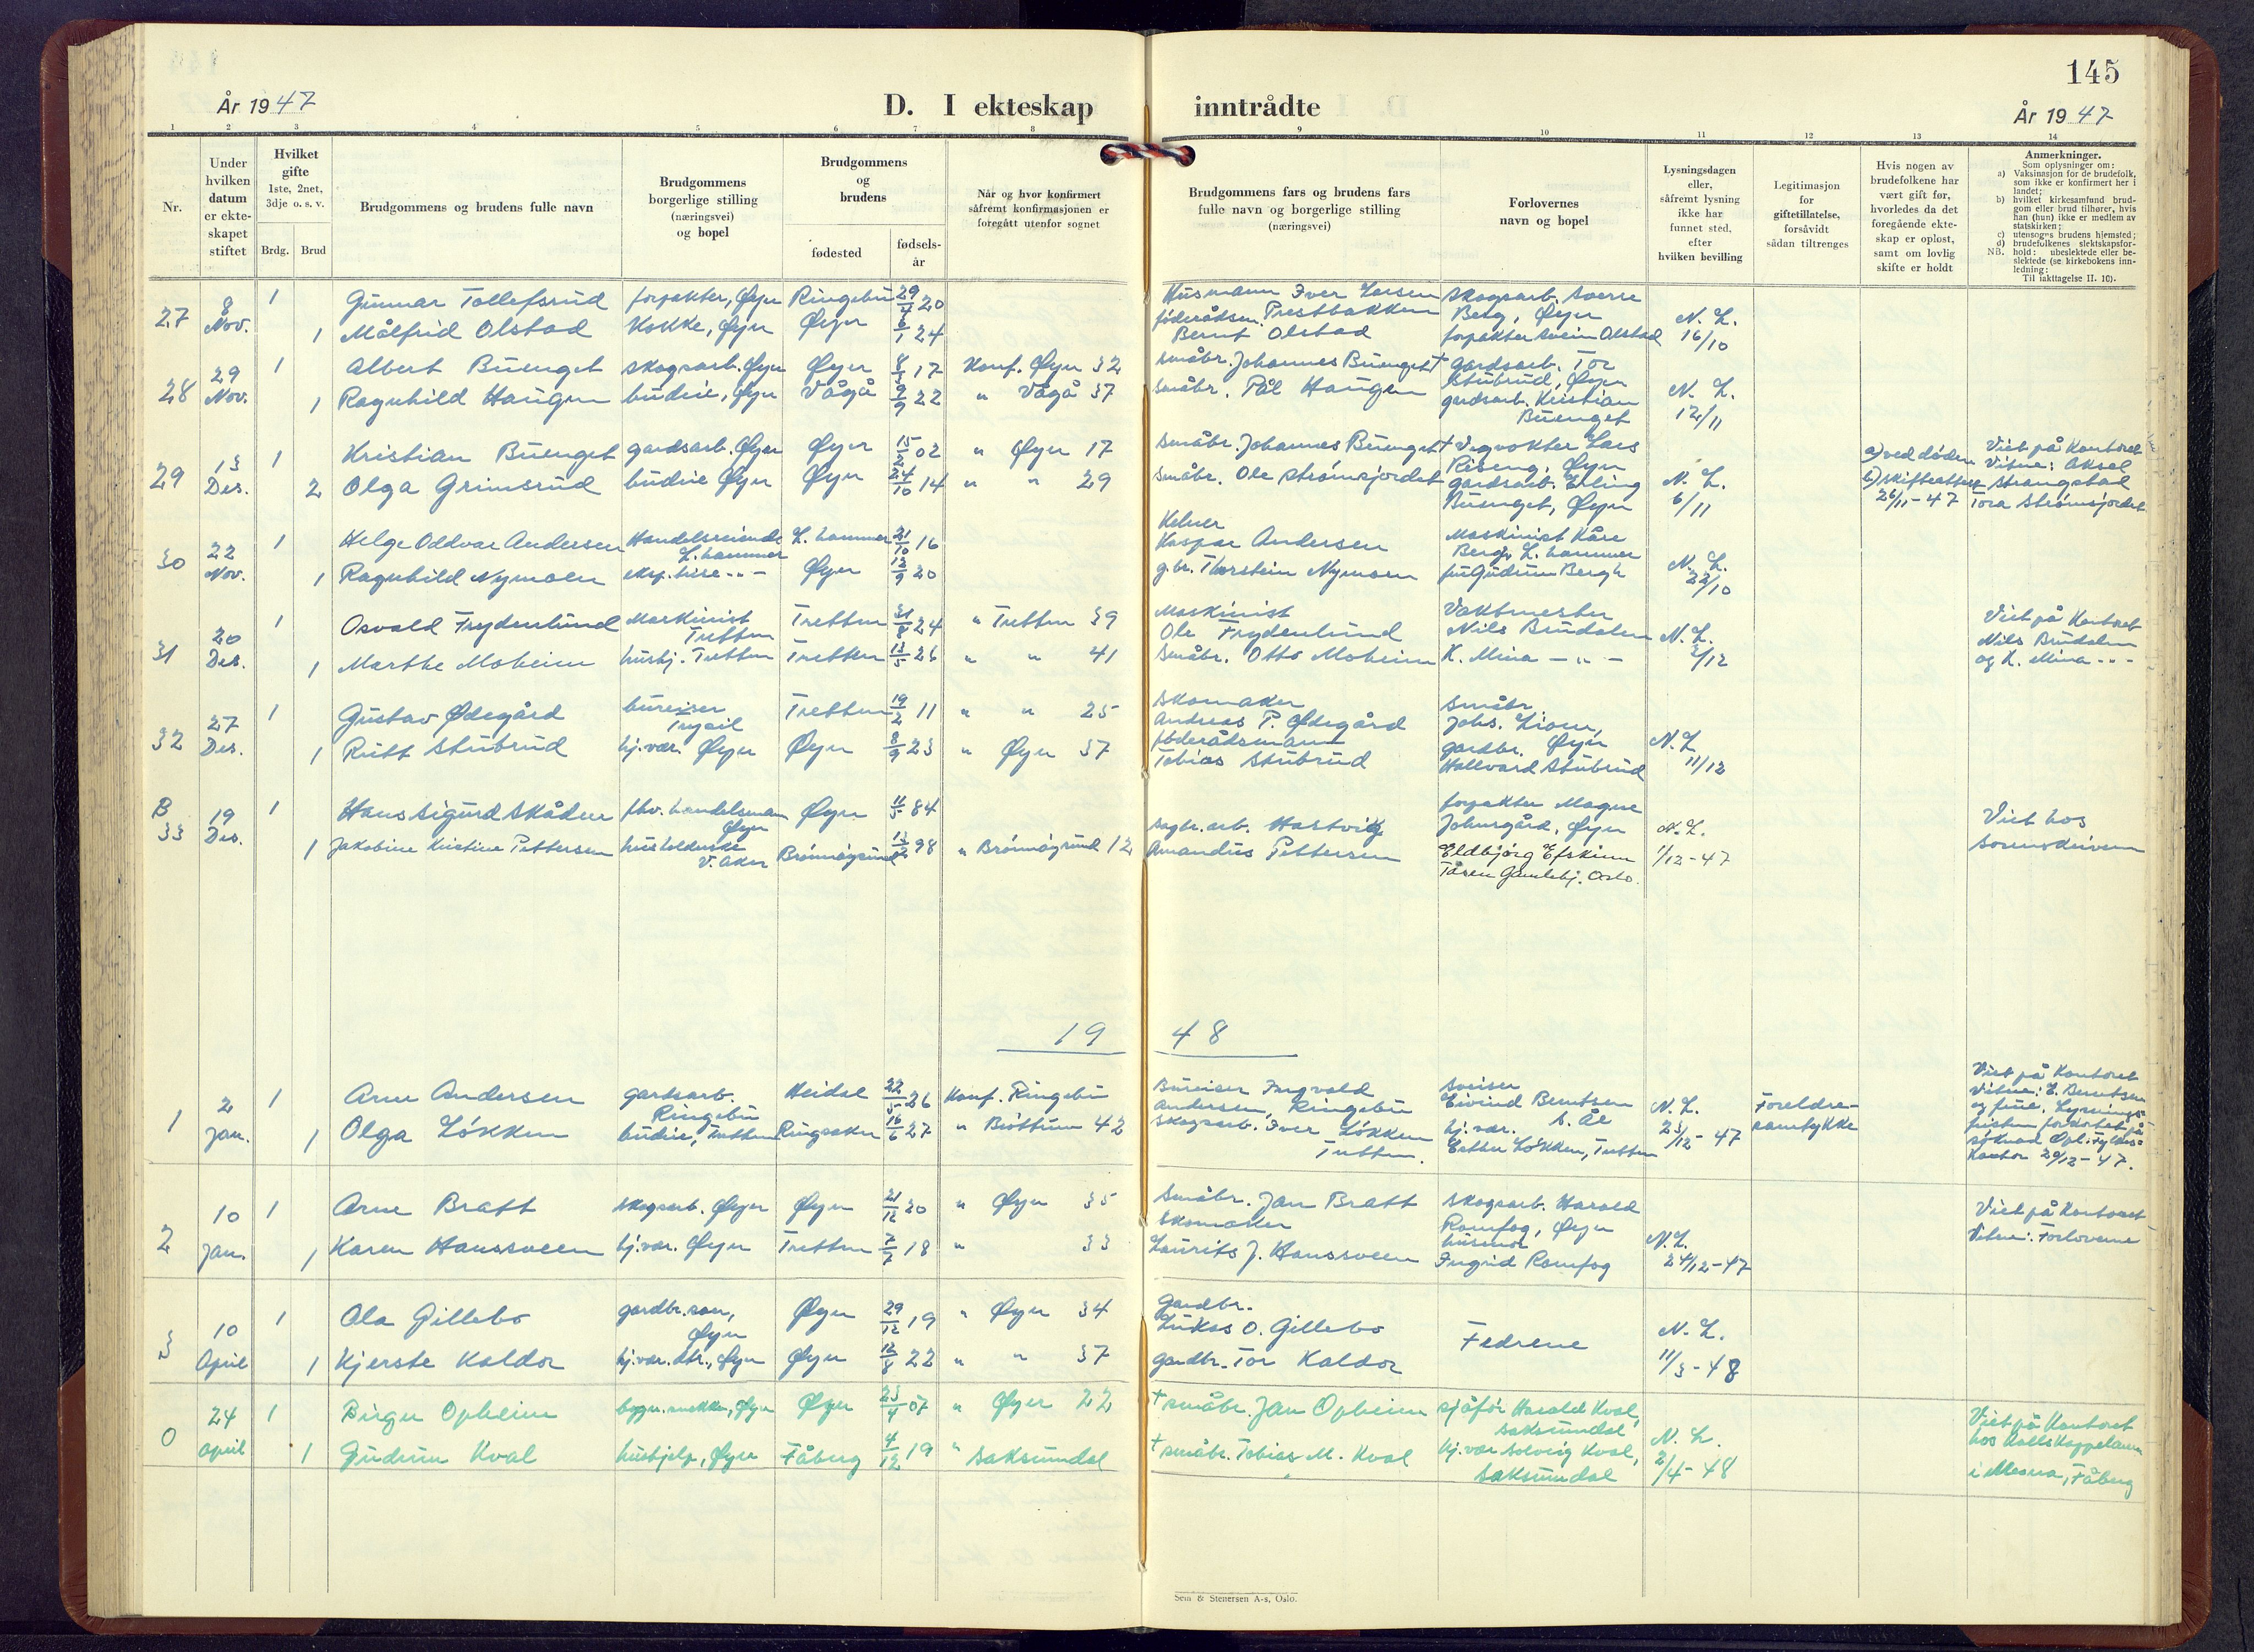 145
År 1947
D. I ekteskap
inntrådte
År 1947
1 2 3 4 5 6 7 8 9 10 11 12 13 14
Nr.
Under
hvilken
datum
er ekte-
skapet
stiftet
Hvilket
gifte
1ste, 2net,
3dje o. s. v.
Brdg. Brud
Brudgommens og brudens fulle navn
Brudgommens
borgerlige stilling
(næringsvei)
og bopel
Brudgommens
og
brudens
fødested
fødsels-
år
Når og hvor konfirmert
såfremt konfirmasjonen er
foregått utenfor sognet
Brudgommens fars og brudens fars
fulle navn og borgerlige stilling
(næringsvei)
Forlovernes
navn og bopel
Lysningsdagen
eller,
såfremt lysning
ikke har
funnet sted,
efter
hvilken bevilling
Legitimasjon
for
giftetillatelse,
forsåvidt
sådan tiltrenges
Hvis nogen av
brudefolkene har
vært gift før,
hvorledes da det
foregående ekte-
skap er opløst,
samt om lovlig
skifte er holdt
Anmerkninger.
Som oplysninger om:
a) Vaksinasjon for de brudefolk,
som ikke er konfirmert her i
landet;
b) hvilket kirkesamfund brud-
gom eller brud tilhører, hvis
han (hun) ikke er medlem av
statskirken;
c) utensogns brudens hjemsted;
d) brudefolkenes slektskapsfor-
hold: ubeslektede eller be-
slektede (se kirkebokens inn-
ledning:
NB.
Til iakttagelse II. 10).
27 8 Nov. 1 Gunnar Tollefsrud forpakter, Øyer Ringebu 29/4 20
1 Målfrid Olstad Kokke, Øyer Øyer 6/1 24
Husmann Iver Larsen
Prestbakken
føderådsm. Bernt Olstad
skogsarb. Sverre
Berg, Øyer
forpakter Svein Olstad
N. L.
16/10
28 29 Nov. 1 Albert Buenget skogsarb. Øyer Øyer 8/5 17 Konf. Øyer 32
1 Ragnhild Haugen budeie, Øyer Vågå 9/9 22 " Vågå 37
småbr. Johannes Buenget†
småbr. Pål Haugen
gardsarb. Tor
Stubrud, Øyer
gardsarb. Kristian
Buenget
N. L.
12/11
29 13 Des. 1 Kristian Buenget gardsarb. Øyer Øyer 15/2 02 " Øyer 17
2 Olga Grimsrud budeie Øyer Øyer 24/10 14 " " 29
småbr. Johannes Buenget†
småbr. Ole Strømsjordet
Vegvokter Lars
Riseng, Øyer
gardsarb. Erling
Buenget, Øyer
N. L.
6/11
a) ved døden
b) skifteattest
26/11-47
Viet på Kontoret
Vitne: Aksel
Strangstad
Tora Strømsjordet
30 22 Nov. 1 Helge Oddvar Andersen Handelsreisende L.hammer L. hammer 21/10 16
1 Ragnhild Nymoen eksp.trise -"- Øyer 12/9 20
Kelner
Kaspar Andersen
g.br. Thorstein Nymoen
Maskinist Kåre
Bergh L. hammer
fru Gudrun Bergh
N. L.
22/10
31 20 Des. 1 Osvald Frydenlund Maskinist Tretten Tretten 31/8 24 " Tretten 39
1 Marthe Moheim hushj. Tretten Tretten 13/5 26 " " 41
Maskinist
Ole Frydenlund
småbr. Otto Moheim
Vaktmester
Nils Brudalen
K. Mina -"-
N. L.
2/12
Viet på Kontoret
Nils Brudalen
og K. Mina -"-
32 27 Des. 1 Gustav Ødegård bureiser Trysil Tretten 19/2 11 " " 25
1 Rutt Stubrud hj.vær. Øyer Øyer 8/9 23 " Øyer 37
Skomaker
Andreas P. Ødegård
føderådsmann
Tobias Stubrud
småbr.
Johs. Lien,
gardbr. Øyer
Hallvard Stubrud
N. L.
11/12
B 33 19 Des. 1 Hans Sigurd Skåden fhv. handelsman Øyer Øyer 11/5 84
1 Jakobine Kristine Pettersen husholderske V. Aker Brønnøysund 98 " Brønnøysund 12
sagbr.arb. Hartvig
Amandus Pettersen
forpakter Magne
Johnsgård, Øyer
Eldbjørg Efskinn
Tåsen Gamlehj. Oslo.
N. L.
1/12-47
Viet hos
sorenskriveren
19 48
1 2 Jan. 1 Arne Andersen gardsarb. Ringebu Heidal 22/5 26 Konf. Ringebu
1 Olga Løkken budeie, Tretten Ringsaker 16/6 27 " Brøttum 42
Bureiser Ingvald
Andersen, Ringebu
skogsarb. Iver Løkken
Tretten.
sveiser
Eivind Berntsen
S. Ål
hj. vær.
Esther Løkken, Tretten
N. L.
23/12-47
Foreldre-
samtykke
Viet på Kontoret
Vitne: E. Berntsen
og frue. Lysnings-
fristen forkortet på
søknad Opl. fylkes-
kontor 29/12-47.
2 10 Jan. 1 Arne Bratt skogsarb. Øyer Øyer 21/12 20 " Øyer 35
1 Karen Haugsveen hj.vær. Øyer Tretten 7/7 18 " 33
småbr. Jan Bratt
skomaker
Laurits J. Haugsveen
skogsarb. Harald
Romfog, Øyer
husmor
Ingrid Romfog
N. L.
24/12-47
Viet på Kontoret
Vitne: Forloverne
3 10 April 1 Ola Gillebo gardbr.søn, Øyer Øyer 29/12 19 " Øyer 34
1 Kjerste Kaldor hj.vær. dtr., Øyer Øyer 12/8 22 " " 37
gardbr.
Lukas O. Gillebo
gardbr. Tor Kaldor
Fedrene
N. L.
11/3-48
0 24 April 1 Birger Opheim bygn.snekker, Øyer Øyer 23/4 07 " Øyer 22
1 Gudrun Kval hushjelp, Øyer Fåberg 4/12 19 " Saksumdal
† småbr. Jan Opheim
† småbr. Tobias M. Kval
sjåfør Harald Kval,
Saksumdal
hj. vær Solveig Kval,
Saksumdal
N. L.
2/4-48
Viet på Kontoret
hos Kallskappelanen
i Mesna, Fåberg
Sem & Stenersen A-s, Oslo.